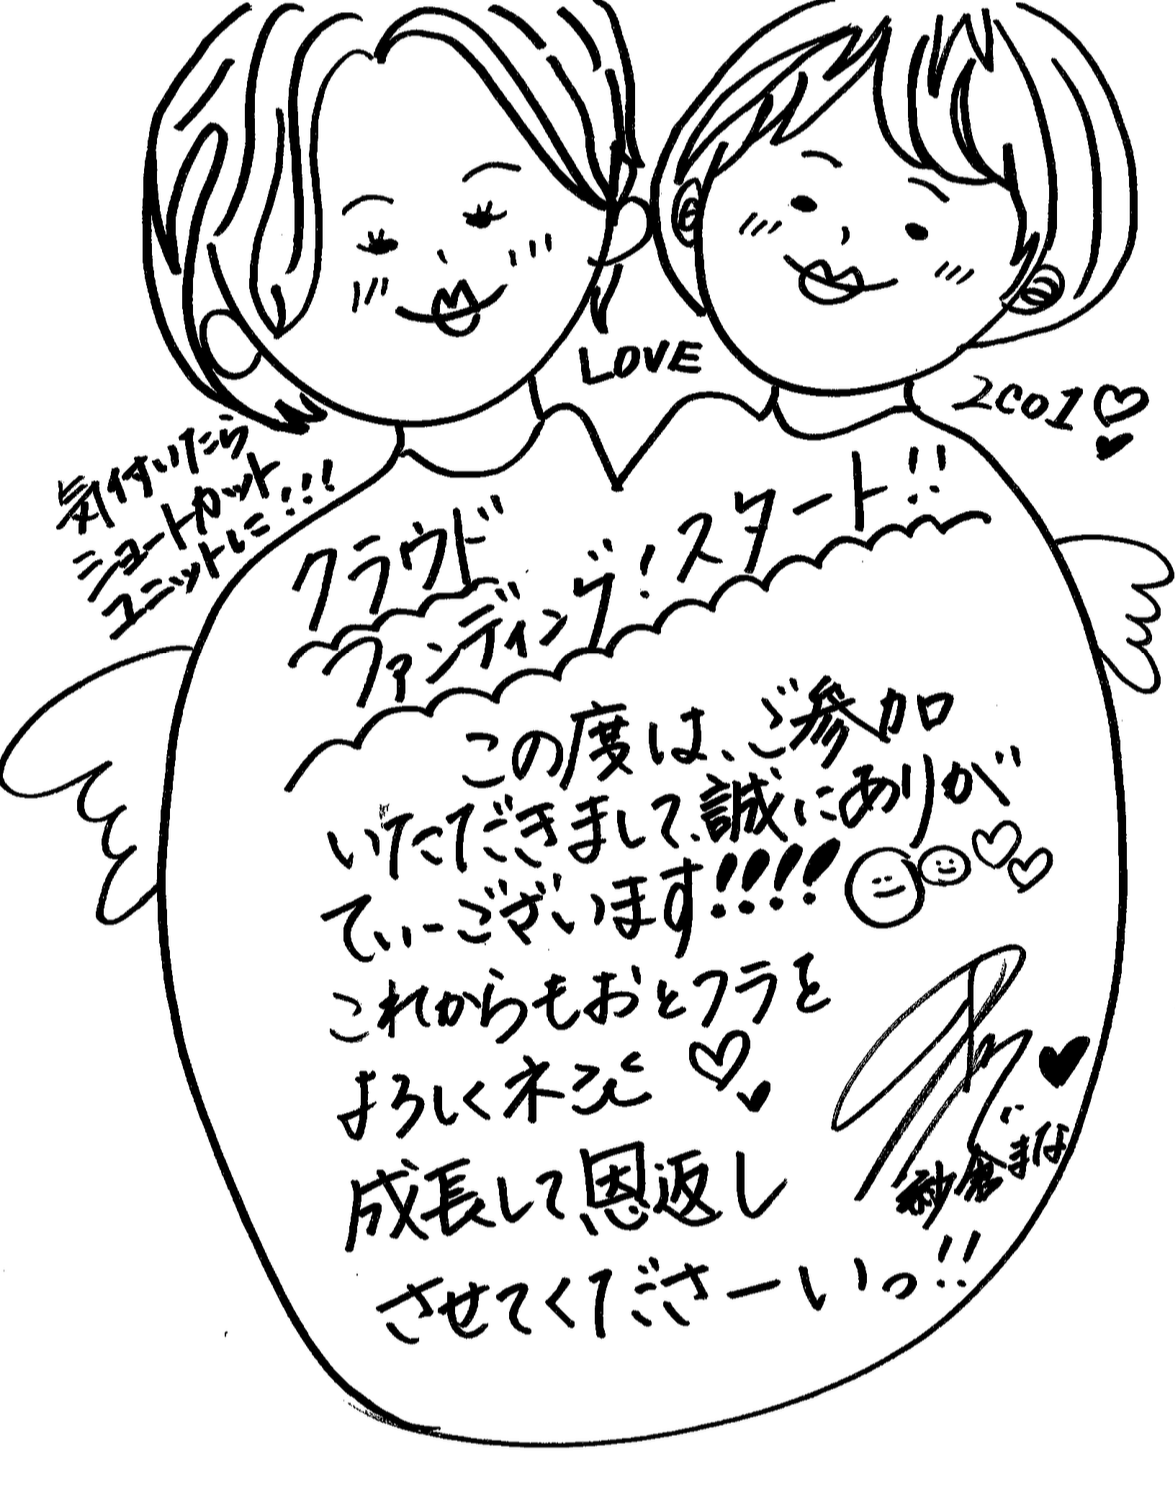 LOVE
2co1
気付いたら
ショートカット
ユニットに!!!
クラウド
ファンディング!スタート!!
この度は、ご参加
いただきまして、誠にありが
てぃーございます!!!!
これからもおとフラを
よろしくネ
成長して恩返し
させてくださーいっ!!
紗倉まな